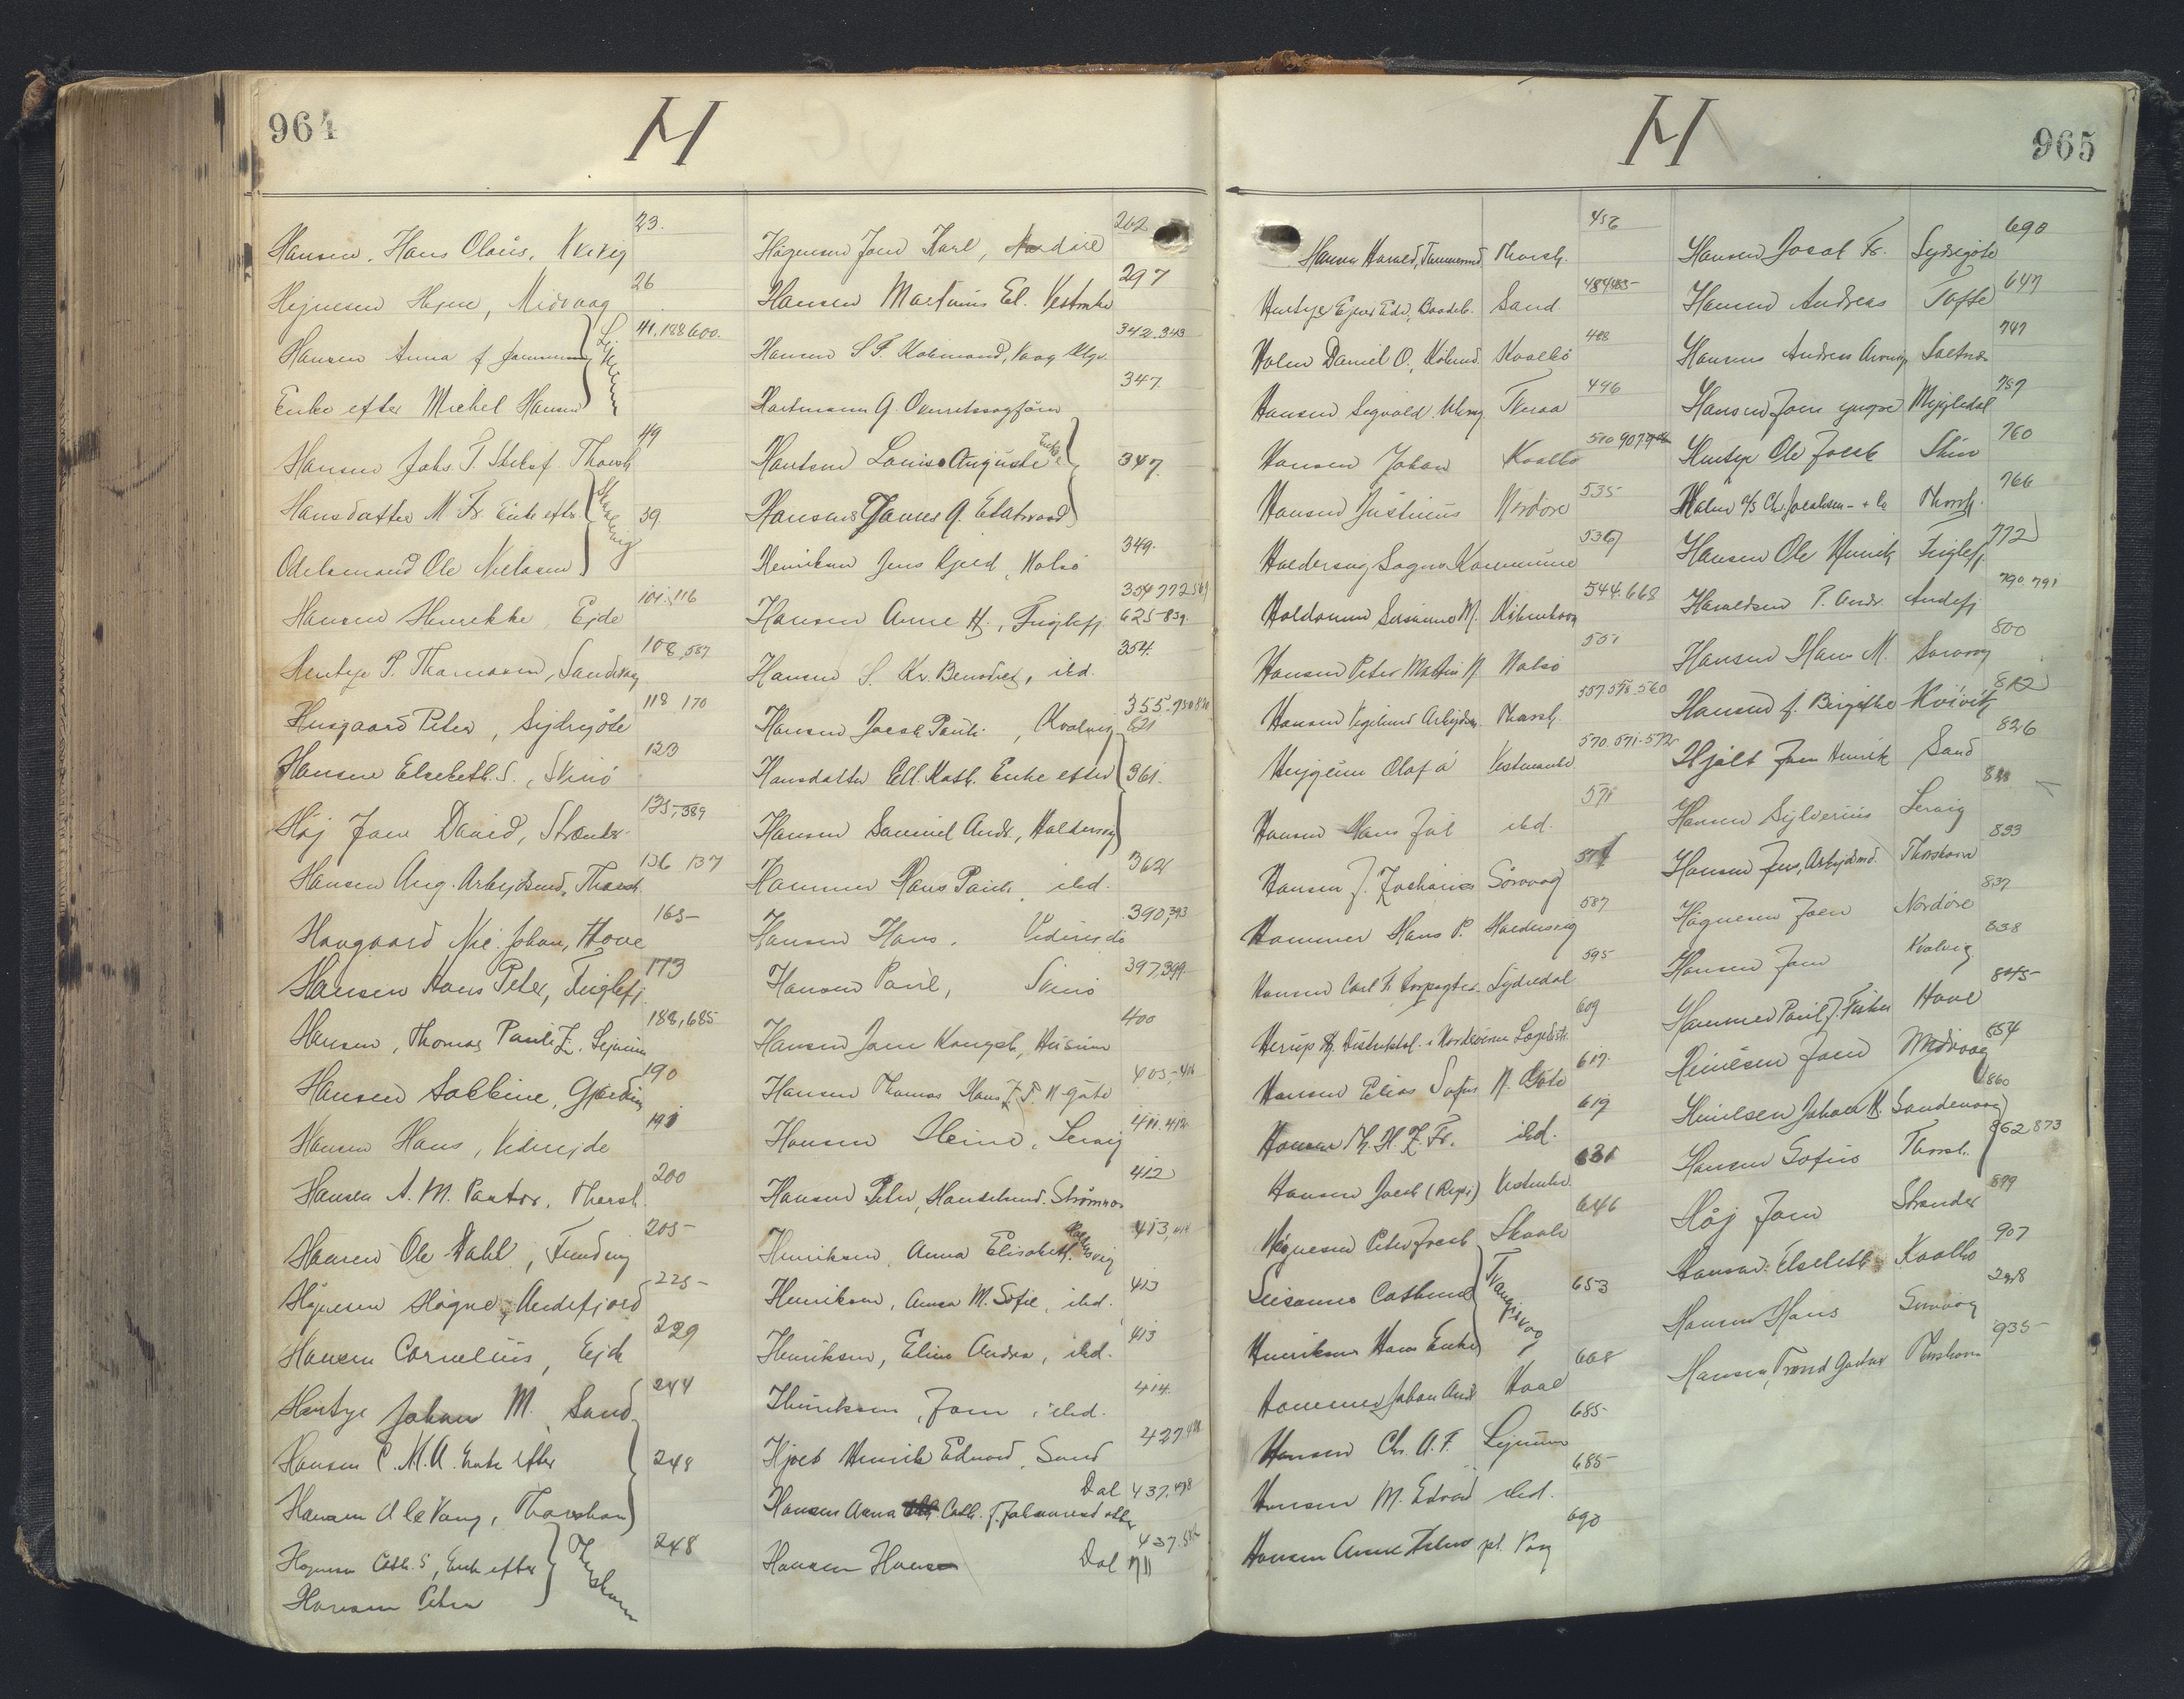 964
H
Hansen, Hans Olaus, Kvivig 23.
Hejnesen Hejne, Midvaag 26
Hansen Anna f. Joensen 41.188.600.
Enke efter Michel Hansen
Hansen Johs. T. Thorsh 49
Hansdatter M. Fr. Enke efter 39.
Odelsmand Ole Nielsen
Hansen Henrikke, Ejde 101, 116
Hentze P. Thomasen, Sandvaag 108, 587
Husgaard Peter, Sydregøte 118 170
Hansen Elsebeth S., Svinö 123
Høj Joen David, Strender 135, 389
Hansen Aug. Arbejdsmd, Thorsh. 136 137
Haagaard Nic. Johan, Hove 165
Hansen Hans Peter, Fuglefj. 173
Hansen, Thomas Pauli Z. Lejnum 188, 685
Hansen Sabbine, Gjerdum 190
Hansen Hans, Viderejde 191
Hansen A. M. Pastor, Thorsh. 200
Hansen Ole Dahl, Funding 205
Højnesen Høgne, Andefjord 225
Hansen Cornelius, Ejde 229
Hentze Johan M. Sand 244
Hansen C. M. A. Enke efter 248
Hansen Ole Vang, Thorshavn
Hognesen Cath. S, Enke efter Thorshavn 248
Hansen Peter
Högnesen Joen Karl, Nordöre 262
Hansen Martinus El. Vestmh 297
Hansen S. F. Købmand, Vaag 342.343
Hartmann G. Overretssagfører 347.
Hansen Louise Auguste Enke 347.
Hansens James G. Etatsraad
Henriksen Jens Kjeld, Nolsö 349.
Hansen Anne H., Fuglefj 354 772 569
625-839.
Hansen S. Kr. Benedict, ibd. 354.
Hansen Jacob Pauli, Kvalvig 355.750 820
621
Hansdatter Ell. Kath. Enke efter 361.
Hansen Samuel Andr., Haldersvig
Hammer Hans Paul, ibd. 362
Hansen Hans, Viderejde 390, 393
Hansen Paul, Svinö 397, 399
Hansen Joen Kongsb, Húsum 400
Hansen Thomas Hans Z. F. N-göte 405, 416
Hansen Heine, Lervig 411.412
Hansen Peter, Handelsmd. Strömnæs 412
Henriksen, Anna Elisabeth Haldersvig 413, 414
Henriksen, Anna M. Sofie, ibd. 413
Henriksen, Elin Andrea, ibd. 413
Henriksen, Joen, ibd. 414.
Hjelt Henrik Edvard, Sand 427.
Hansen Anna Cath. f. Johannesdatter Dal 437, 438
Hansen Hans Dal 437.
711
H
965
Hansen Harald, Tømmermd Thorsh. 456
Hentze Ejner Edv, Baadeb. Sand 484 485
Holm Daniel O., Købmd. Kvalbö 488
Hansen Sigvald Tveraa 496
Hansen Johan Kvalbö 510 907
Hansen Justinus Nordöre 535
Haldersvig Sogns Kommune 536
Haldansen Susanne M. København 544.668
Hansen Peter Martin N. Nolsö 551
Hansen Arbejdsm. Thorsh. 557.558.560
Heygum Olaf á Vestmanhv 570.571-572
Hansen Hans Jul ibd. 571
Hansen J. Zacharias Sörvaag 574
Hammer Hans P. Haldersvig 587
Hansen Carl Fr. Forpagter Sydredal 595
Herup Distriktsl. i Norderöernes Lægedistr. 609
Hansen Elias Sofus N. Göte 617.
Hansen Th. H. Z. Fr. ibd. 619
Hansen Jacob Vestmhv. 631
Högnesen Peter Jacob Skaale 646
Susanne Cathrine Tvangsvaag 653
Henriksen Hans Enke
Hammer Johan Andr Hove 668
Hansen Chr. A. F. Lejnum 685
Hansen M. Edvard ibd. 685
Hansen Anne Vaag 690
Hansen Jacob Fr. Sydregöte 690
Hansen Andreas Tofte 647
Hansen Andreas Saltnes 747
Hansen Joen yngre Mygledal 757
Hentze Ole Jacob Skuo 760
Holm A/S Chr. Jacobsen + Co Thorsh. 766
Hansen Ole Henrik Fuglefj 772
Haraldsen P. Andr. Andefj 790.791
Hansen Hans M. Sorvaag 800
Hansen f. Birgithe Kvivik 812
Hjalt Joen Henrik Sand 826
Hansen Sylverius Lervig 828
Hansen Jens, Arbejdsmd. Thorshavn 833
Högnesen Joen Nordöre 837
Hansen Joen Kvalvig 838
Hammer Paul J. Fisker Hove 845
Heinesen Joen Midvaag 854
Heinesen Johan H. Sandevaag 860
Hansen Sofus Thorsh. 862 873
Høj Joen Strender 899
Hansen Elsebeth Kvalbö 907
Hansen Hans Sorvaag 298
Hansen, Trond Gustav Thorshavn 935